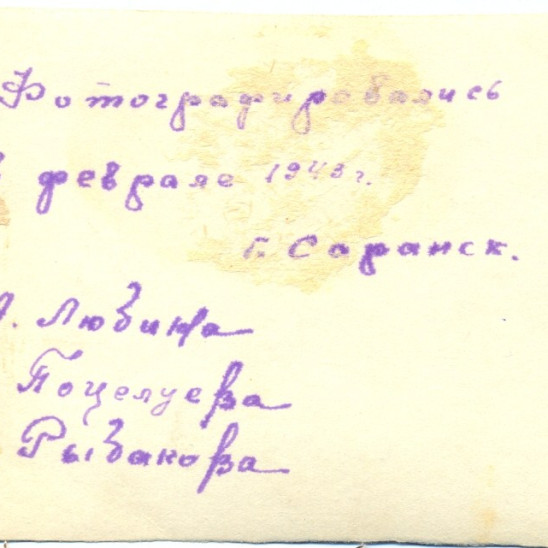 Фотографировались
в феврале 1943 г.
г. Саранск.
Любина
Поцелуева
Рыбакова